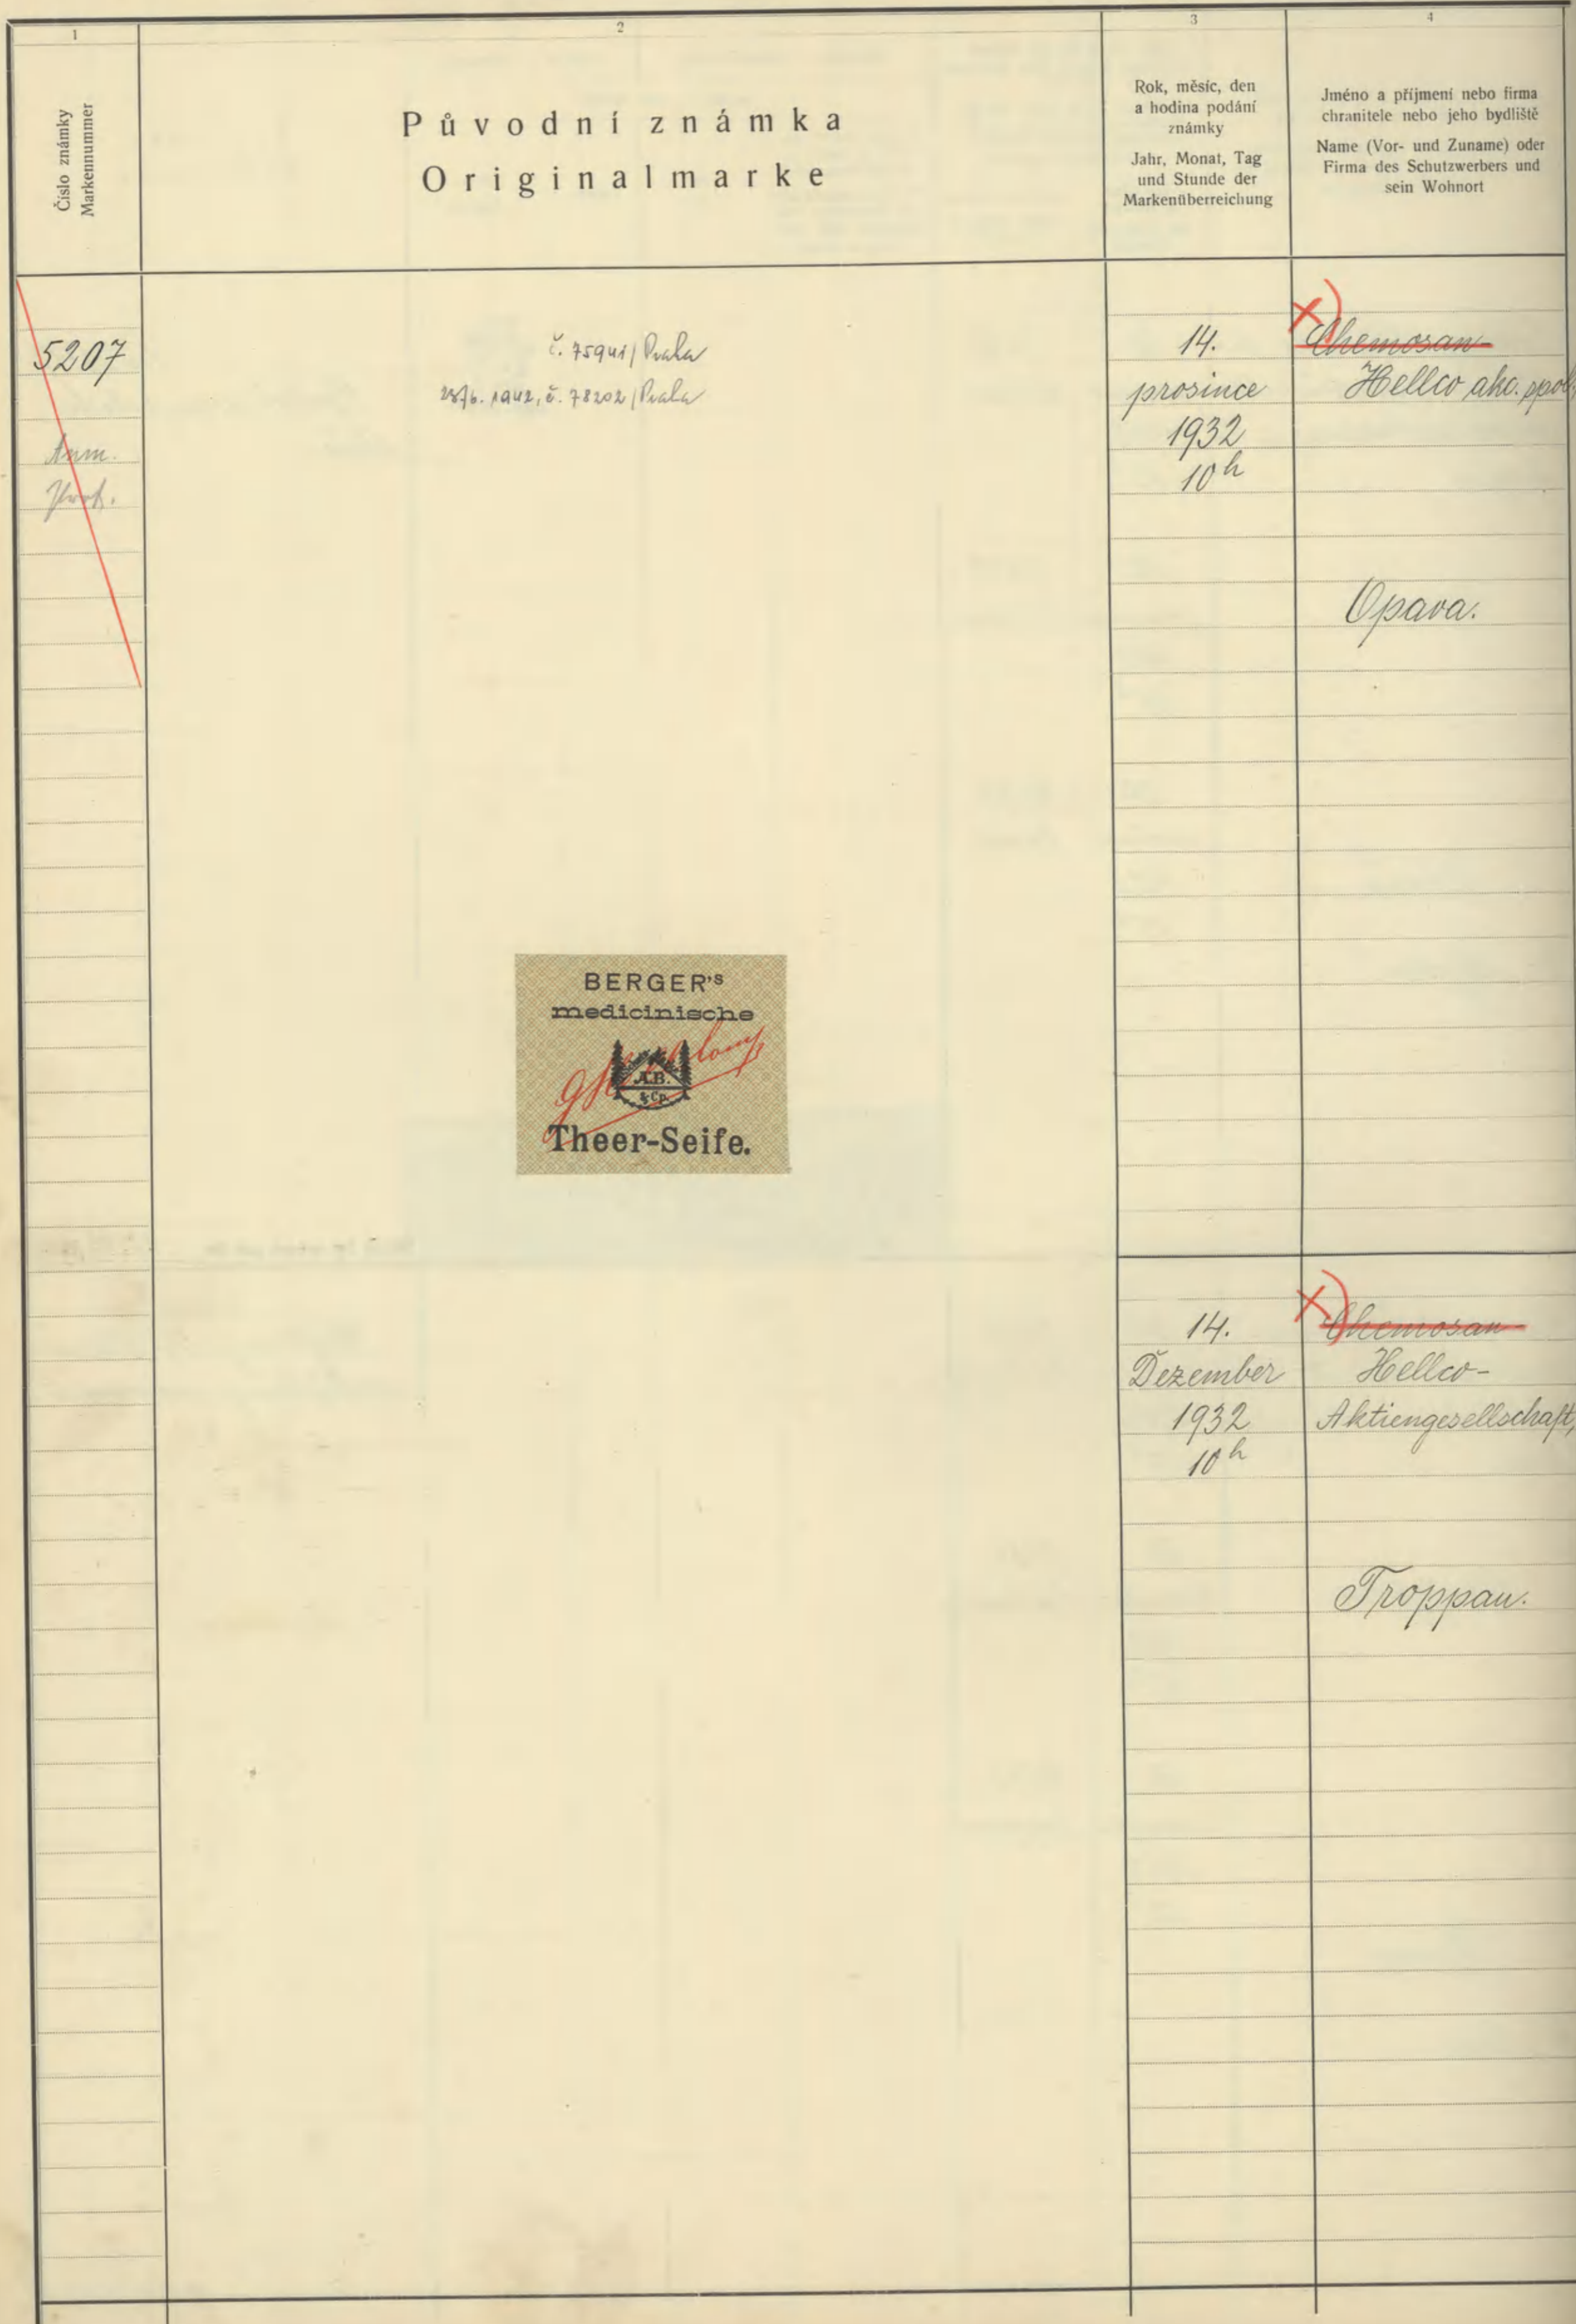 1
2
3
4
Číslo známky
Markennummer
Původní známka
Originalmarke
Rok, měsíc, den
a hodina podání
známky
Jahr, Monat, Tag
und Stunde der
Markenüberreichung
Jméno a příjmení nebo firma
chranitele nebo jeho bydliště
Name (Vor- und Zuname) oder
Firma des Schutzwerbers und
sein Wohnort
5207
Anm.
č. 75941/Praha
1942, č. 78202/Praha
14.
prosince
1932
10h
x)
Chemosan-
Hellco akc. spol.
Opava.
BERGER's
medicinische
A.B.
& Cp.
Theer-Seife.
14.
Dezember
1932
10h
x)
Chemosan-
Hellco-
Aktiengesellschaft,
Troppau.